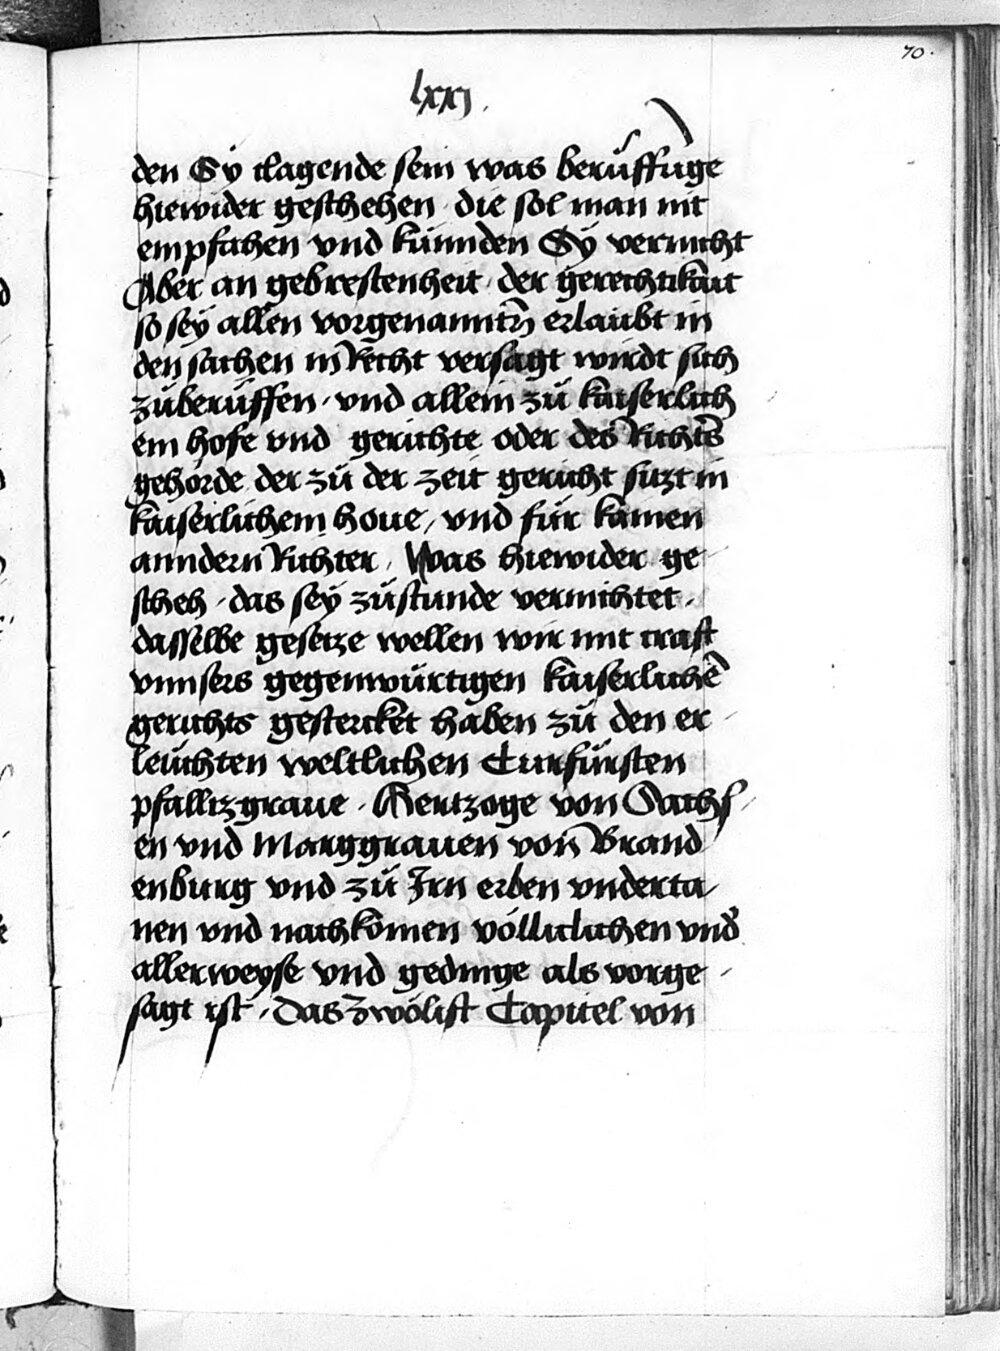 70.
lxxj.
den Sÿ clagende sein was berůffūge
hiewider geschehen · die sol man nit
empfahen vnd künnden Sÿ vernicht
Aber an gebrestenheit · der gerechtikait
so sey allen vorgenanntñ erlaubt in
den sachen in Recht versagt wirdt sich
zůberůffen · vnd allein zů kaiserlich
em hofe vnd gerichte oder des Richtes
gehörde der zů der zeit gericht sitzt in
kaiserlichem houe / vnd für kainen
anndern Richter / Was hiewider ge
scheh · das sey zůstunde vernichtet ·
dasselbe gesetze wellen wir mit craft
vnnsers gegenwürtigen kaiserlichē
gerichts gestercket haben zů den er
leüchten weltlichen Curfürsten
pfalltzgraue · Hertzoge von Sachs
en vnd Marggrauen von Brand
enburg vnd zů Irn erben vnderta
nen vnd nachkomen völliclichen vnd
allerweyse vnd gedinge als vorge
sagt ist / Das Zwölift Capitel von